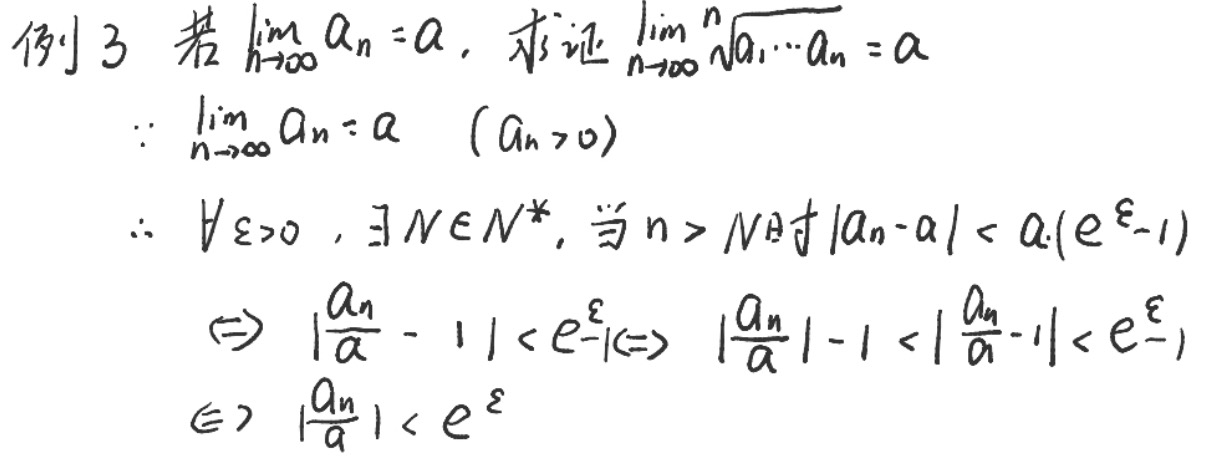 例3 若 lim_{n→∞} a_n = a, 求证 lim_{n→∞} ⁿ√(a_1⋯a_n) = a
∵ lim_{n→∞} a_n = a (a_n > 0)
∴ ∀ε>0, ∃N∈N*, 当 n > N时 |a_n - a| < a·(e^ε - 1)
⇔ |a_n/a - 1| < e^ε - 1 ⇔ |a_n/a| - 1 < |a_n/a - 1| < e^ε - 1
⇔ |a_n/a| < e^ε